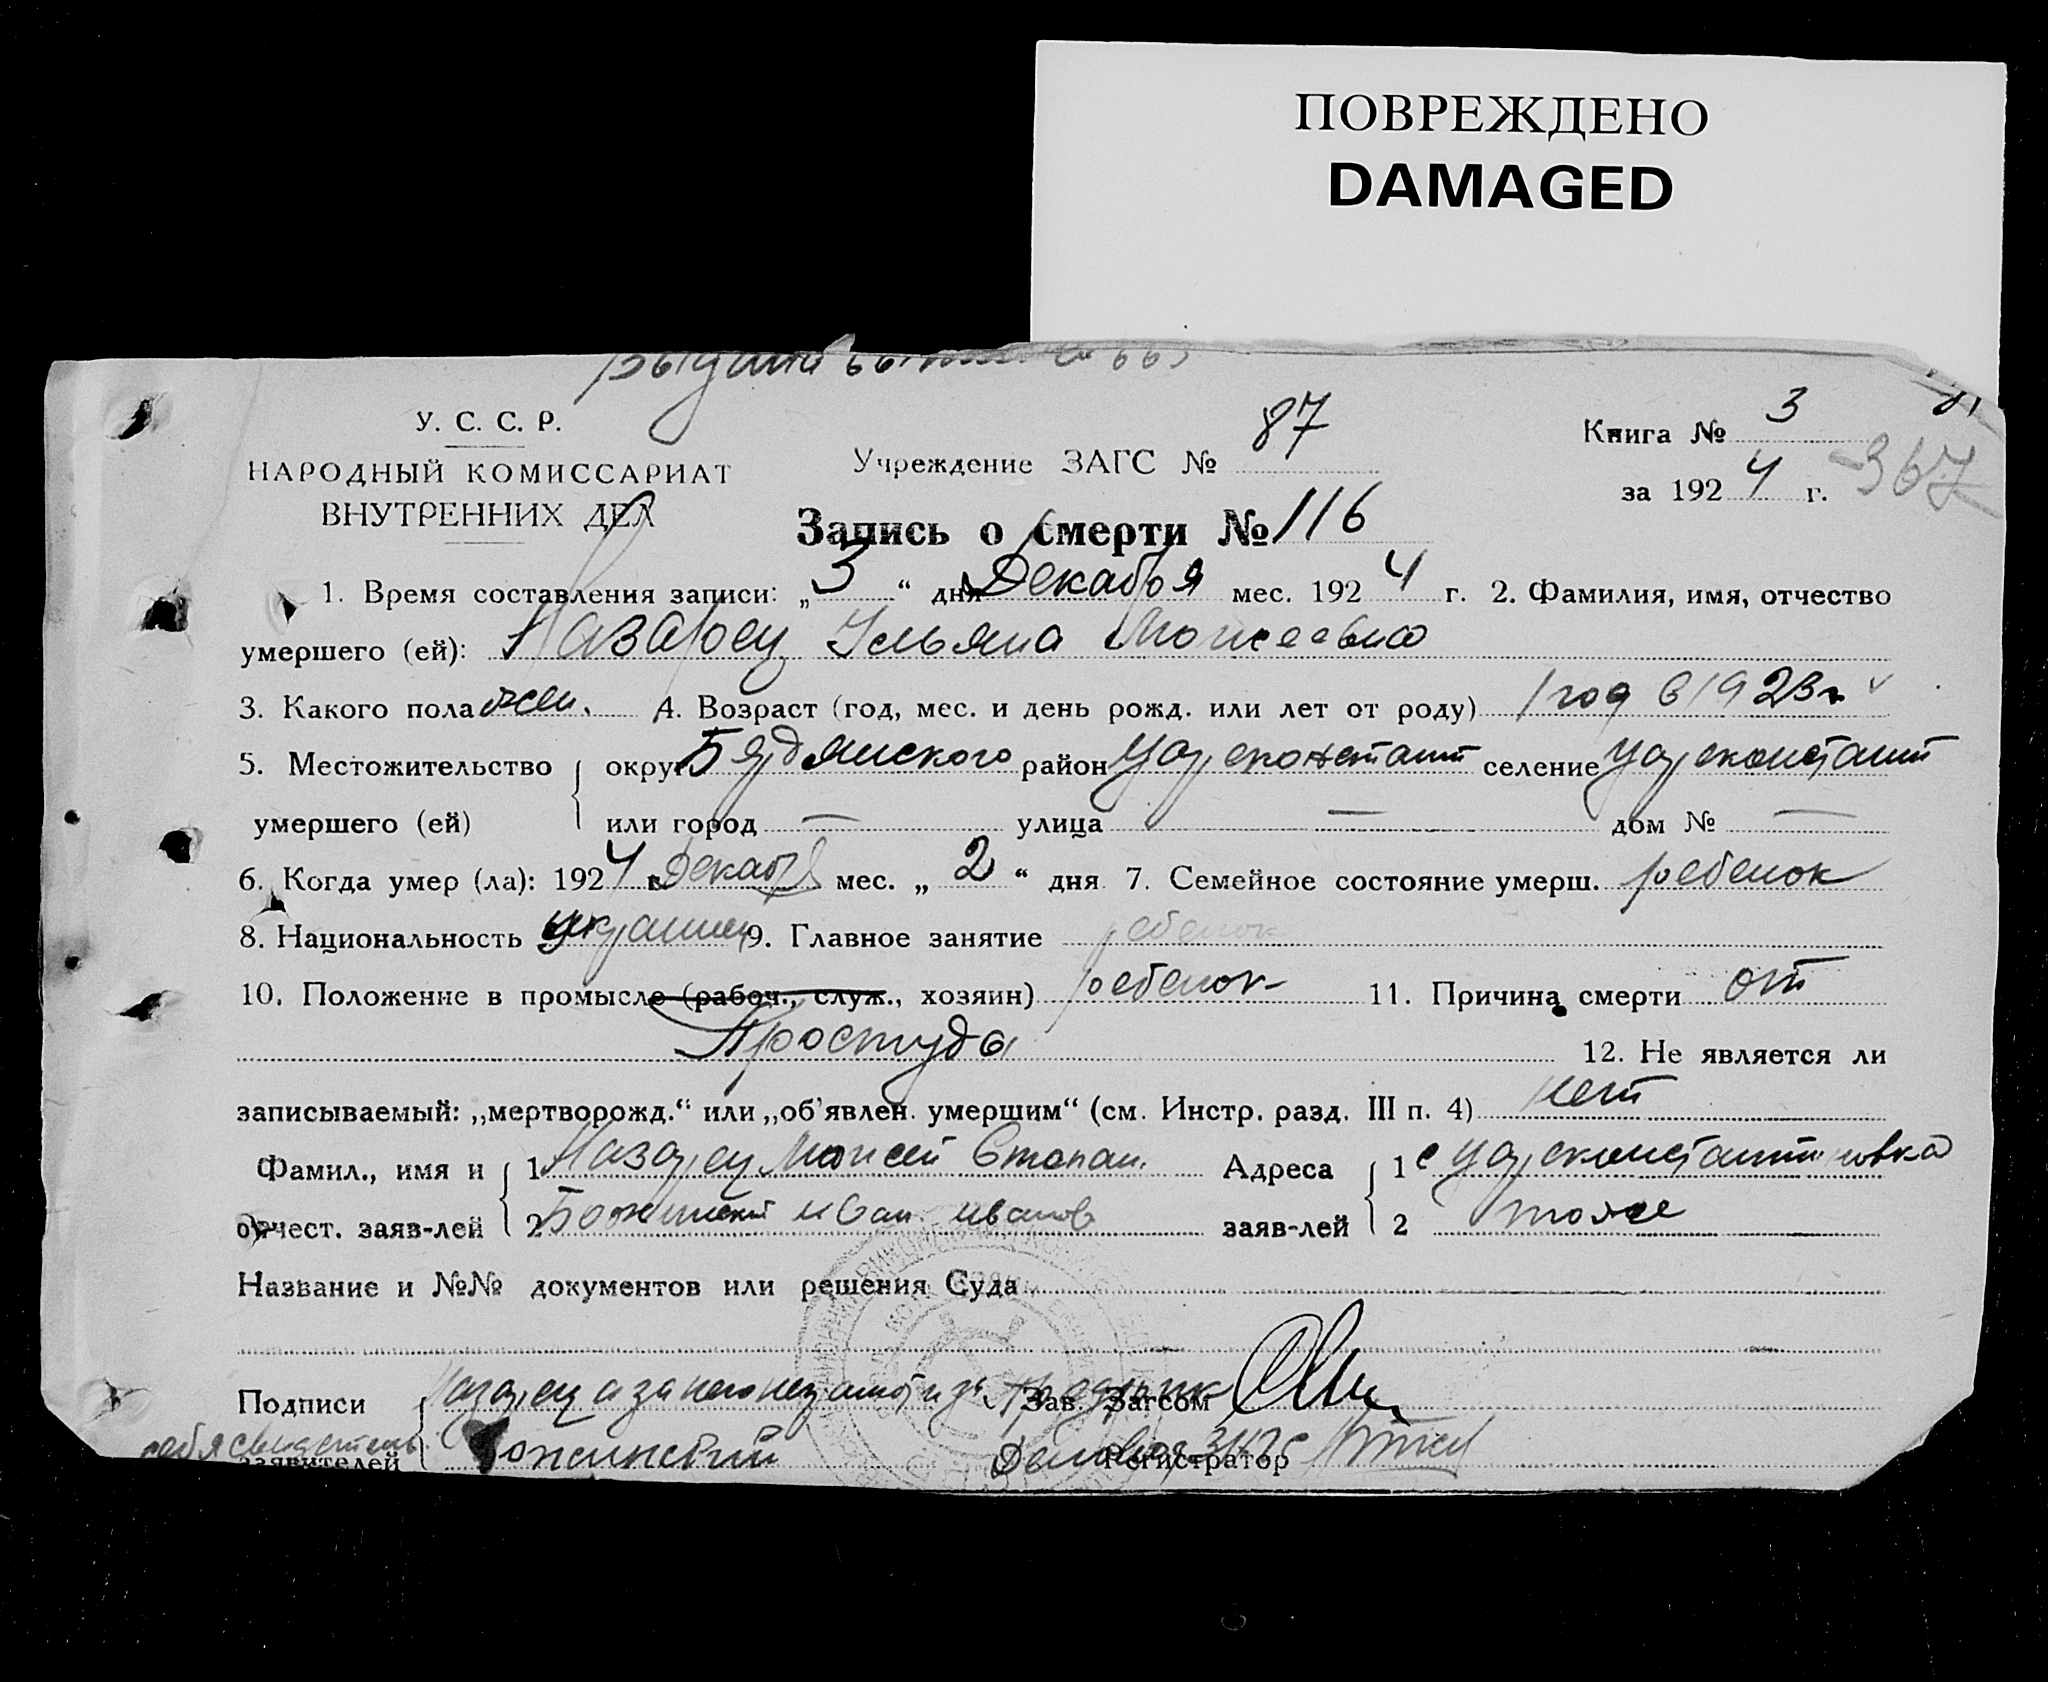 ПОВРЕЖДЕНО
DAMAGED
У. С. С. Р.
НАРОДНЫЙ КОМИССАРИАТ
ВНУТРЕННИХ ДЕЛ
Учреждение ЗАГС № 87
Книга № 3
за 1924 г.
367
Запись о смерти № 116
1. Время составления записи: „3“ дня Декабря мес. 1924 г. 2. Фамилия, имя, отчество
умершего (ей): Назарец Ульяна Моисеевна
3. Какого пола жен. 4. Возраст (год, мес. и день рожд. или лет от роду) 1 год в 1923 г
5. Местожительство округ Бердянского район Цареконстант селение Цареконстант
умершего (ей) или город — улица — дом № —
6. Когда умер (ла): 1924 г. Декабря мес. „2“ дня 7. Семейное состояние умерш. ребенок
8. Национальность украинец 9. Главное занятие ребенок
10. Положение в промысле (рабоч., служ., хозяин) ребенок 11. Причина смерти от
Простуды 12. Не является ли
записываемый: „мертворожд.“ или „об’явлен. умершим“ (см. Инстр. разд. III п. 4) нет
Фамил., имя и 1 Назарец Моисей Степан. Адреса 1 с Цареконстантиновка
отчест. заяв-лей 2 Божинский Иван Иванов заяв-лей 2 тоже
Название и №№ документов или решения Суда
Подписи Назарец а за него неграмот Зав. Загсом
себя свидетель
заявителей Божинский Регистратор